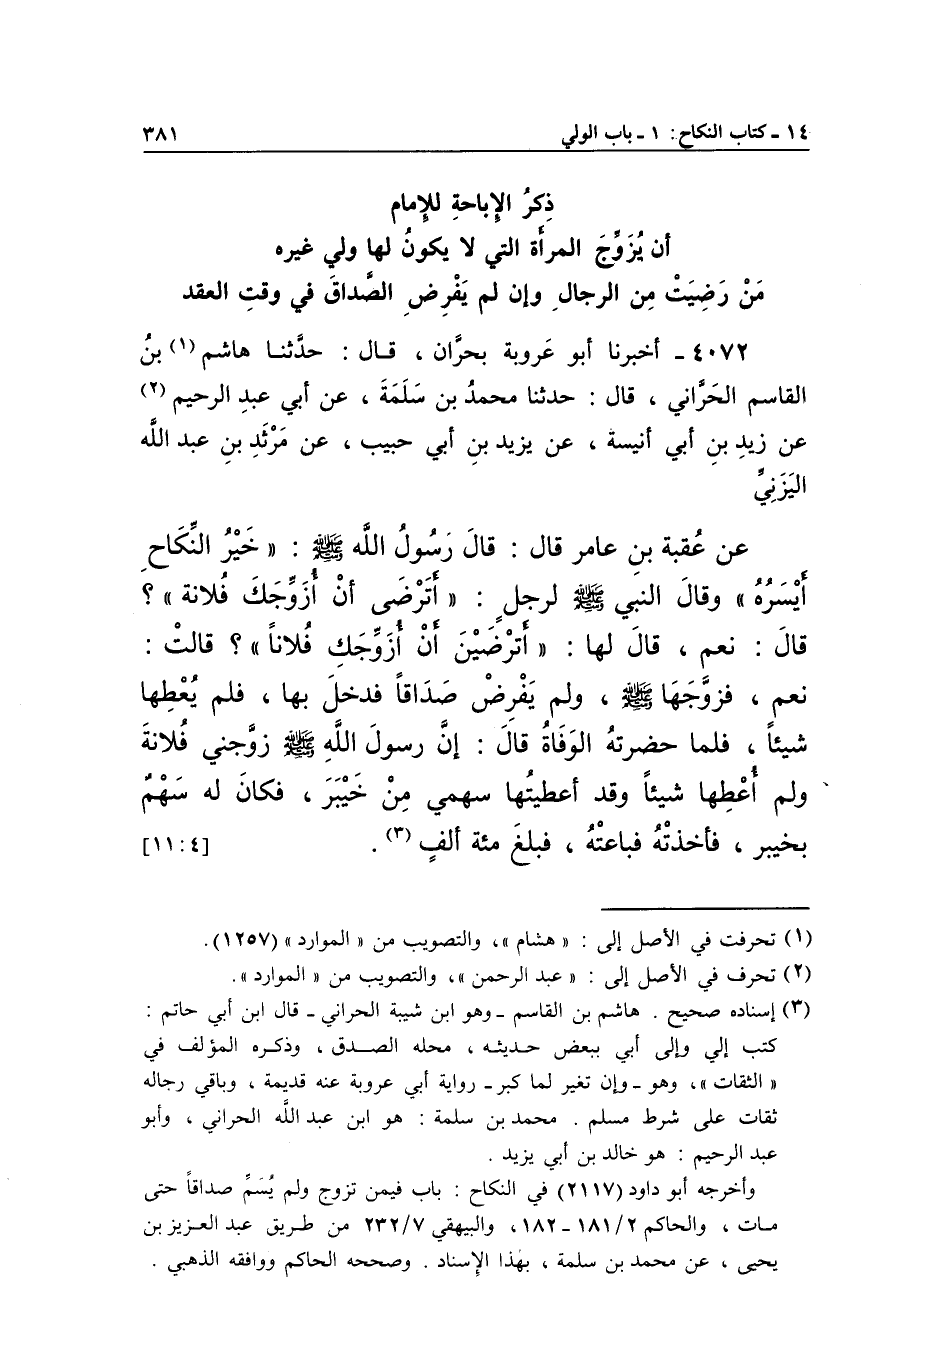 ١٤ ـ كتاب النكاح: ١ ـ باب الولي ٣٨١
ذِكرُ الإِباحةِ للإِمام
أن يُزَوِّجَ المرأة التي لا يكونُ لها ولي غيره
مَنْ رَضِيَتْ مِن الرجالِ وإن لم يَفْرِضِ الصَّداقَ في وقتِ العقد
٤٠٧٢ ـ أخبرنا أبو عَروبة بحرَّان ، قال : حدَّثنا هاشم(١) بنُ
القاسم الحَرَّاني ، قال : حدثنا محمدُ بن سَلَمَةَ ، عن أبي عبدِ الرحيم(٢)
عن زيدِ بنِ أبي أنيسة ، عن يزيد بنِ أبي حبيب ، عن مَرْثَدِ بنِ عبد اللَّه
اليَزَنِيِّ
عن عُقبة بنِ عامر قال : قالَ رَسُولُ اللَّه ﷺ : « خَيْرُ النِّكَاحِ
أَيْسَرُهُ » وقالَ النبي ﷺ لرجلٍ : « أَتَرْضَى أنْ أُزَوِّجَكَ فُلانة » ؟
قالَ : نعم ، قالَ لها : « أَتَرْضَيْنَ أَنْ أُزَوِّجَكِ فُلاناً » ؟ قالتْ :
نعم ، فزوَّجَهَا ﷺ ، ولم يَفْرِضْ صَدَاقاً فدخلَ بها ، فلم يُعْطِها
شيئاً ، فلما حضرتهُ الوَفَاةُ قالَ : إنَّ رسولَ اللَّهِ ﷺ زوَّجني فُلانةَ
ولم أُعْطِها شيئاً وقد أعطيتُها سهمي مِنْ خَيْبَرَ ، فكانَ له سَهْمٌ
بخيبر ، فأخذتْهُ فباعتْهُ ، فبلغَ مئة ألفٍ(٣) . [٤ : ١١]
(١) تحرفت في الأصل إلى : « هشام »، والتصويب من « الموارد » (١٢٥٧).
(٢) تحرف في الأصل إلى : « عبد الرحمن »، والتصويب من « الموارد ».
(٣) إسناده صحيح . هاشم بن القاسم ـ وهو ابن شيبة الحراني ـ قال ابن أبي حاتم :
كتب إلي وإلى أبي ببعض حديثه ، محله الصدق ، وذكره المؤلف في
« الثقات »، وهو ـ وإن تغير لما كبر ـ رواية أبي عروبة عنه قديمة ، وباقي رجاله
ثقات على شرط مسلم . محمد بن سلمة : هو ابن عبد اللَّه الحراني ، وأبو
عبد الرحيم : هو خالد بن أبي يزيد .
وأخرجه أبو داود (٢١١٧) في النكاح : باب فيمن تزوج ولم يُسَمِّ صداقاً حتى
مات ، والحاكم ٢/ ١٨١ ـ ١٨٢، والبيهقي ٧/ ٢٣٢ من طريق عبد العزيز بن
يحيى ، عن محمد بن سلمة ، بهذا الإسناد . وصححه الحاكم ووافقه الذهبي .